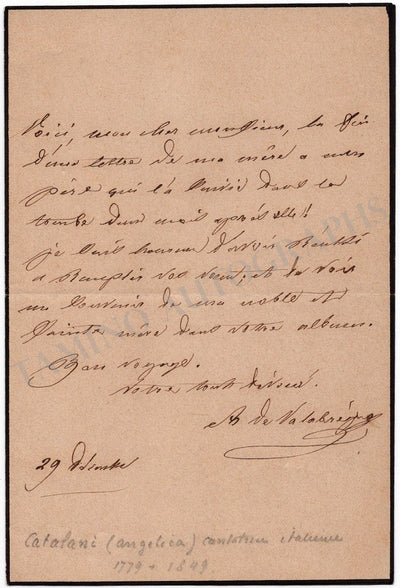 Voici, mon cher monsieur, la fin
d'une lettre de ma mère a mon
père qui l'a suivie dans la
tombe deux mois après elle!!
je suis heureux d'avoir
a remplir vos vœux, et de voir
un souvenir de ma noble et
sainte mère dans votre album.
Bon voyage.
Votre tout dévoué.
de Valabrègue
29
Catalani (angelica) cantatrice italienne
1779 + 1849
TAMINO AUTOGRAPHS